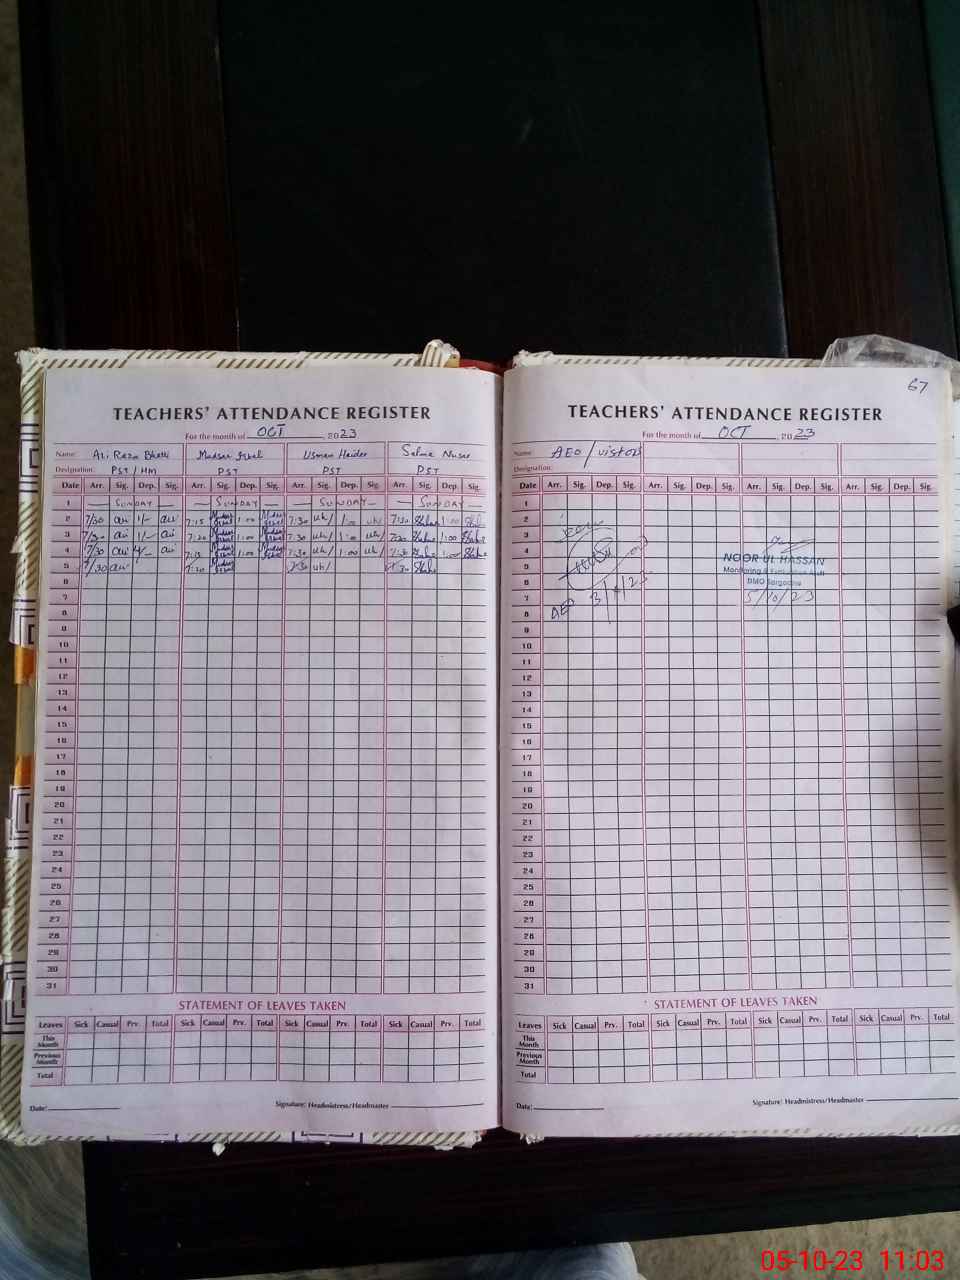 67
TEACHERS' ATTENDANCE REGISTER
For the month of OCT, 2023
Name: Ali Raza Bhatti Mudsar Iqbal Usman Haider Salma
Designation: PST/HM PST PST PST
Date Arr. Sig. Dep. Sig. Arr. Sig. Dep. Sig. Arr. Sig. Dep. Sig. Arr. Sig. Dep. Sig.
1 SUNDAY SUNDAY SUNDAY SUNDAY
2 7/30 1/- 7:15 1:00 7:30 1:00 7:30 1:00
3 7/30 1/- 7:20 1:00 7:30 1:00 7:30 1:00
4 7/30 7:15 1:00 7:30 1:00 7:30 1:00
5 7/30 7:20 7:30 7:30
6
7
8
9
10
11
12
13
14
15
16
17
18
19
20
21
22
23
24
25
26
27
28
29
30
31
STATEMENT OF LEAVES TAKEN
Leaves Sick Casual Prv. Total Sick Casual Prv. Total Sick Casual Prv. Total Sick Casual Prv. Total
This Month
Previous Month
Total
Date: Signature: Headmistress/Headmaster
TEACHERS' ATTENDANCE REGISTER
For the month of OCT, 2023
Name: AEO/visitors
Designation:
Date Arr. Sig. Dep. Sig. Arr. Sig. Dep. Sig. Arr. Sig. Dep. Sig. Arr. Sig. Dep. Sig.
1
2
3
4
5
6
7
8
9
10
11
12
13
14
15
16
17
18
19
20
21
22
23
24
25
26
27
28
29
30
31
NOOR UL HASSAN
Monitoring & Evaluation
DMO Sargodha
5/10/23
AEO
STATEMENT OF LEAVES TAKEN
Leaves Sick Casual Prv. Total Sick Casual Prv. Total Sick Casual Prv. Total Sick Casual Prv. Total
This Month
Previous Month
Total
Date: Signature: Headmistress/Headmaster
05-10-23 11:03